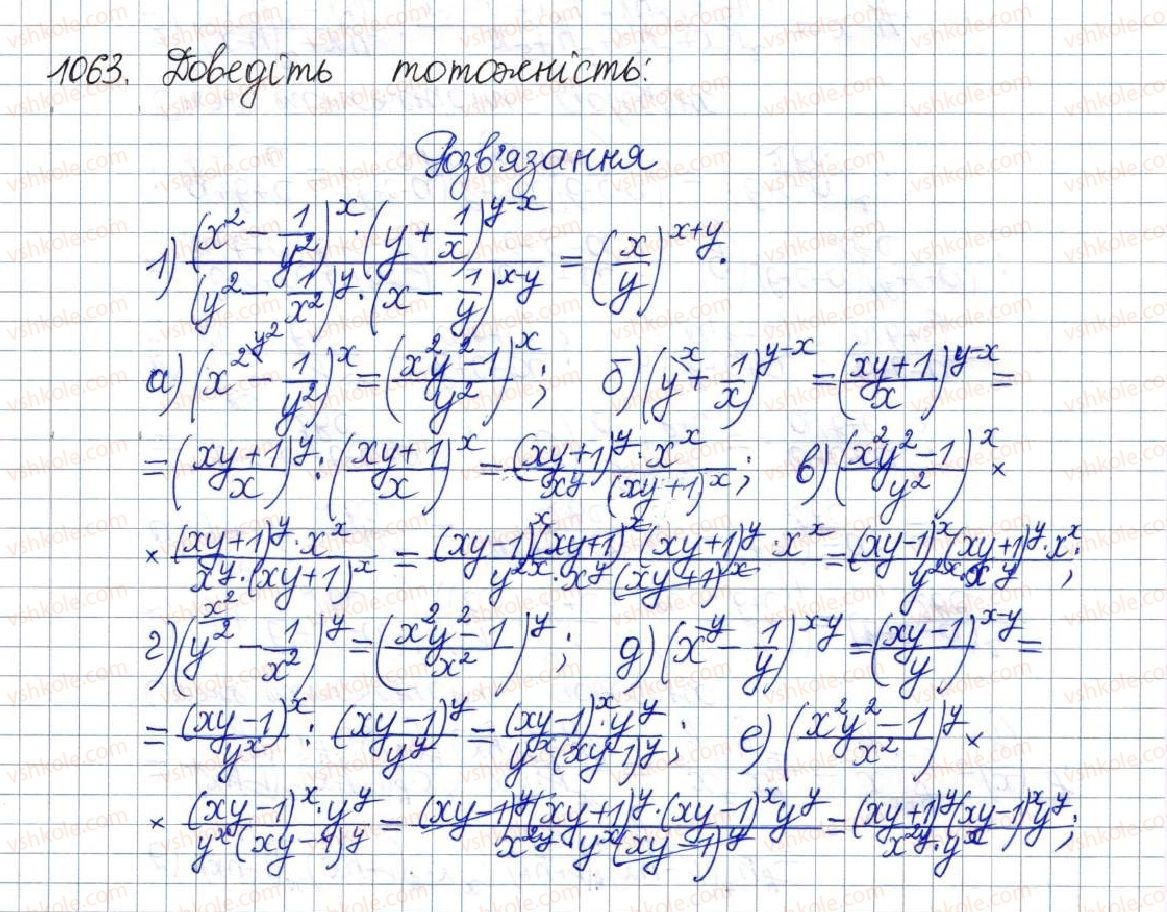 1063. Доведіть тотожність:
Розв'язання
1) ((x² - 1/y²)^x · (y + 1/x)^(y-x)) / ((y² - 1/x²)^y · (x - 1/y)^(x-y)) = (x/y)^(x+y).
а) (x² - 1/y²)^x = ((x²y² - 1)/y²)^x; б) (y + 1/x)^(y-x) = ((xy+1)/x)^(y-x) =
= ((xy+1)/x)^y : ((xy+1)/x)^x = ((xy+1)^y · x^x)/(x^y (xy+1)^x); в) ((x²y² - 1)/y²)^x ×
× ((xy+1)^y · x^x)/(x^y · (xy+1)^x) = ((xy-1)^x (xy+1)^x (xy+1)^y · x^x)/(y^(2x) · x^y (xy+1)^x) = ((xy-1)^x (xy+1)^y · x^x)/(y^(2x) · x^y);
г) (y² - 1/x²)^y = ((x²y² - 1)/x²)^y; д) (x - 1/y)^(x-y) = ((xy-1)/y)^(x-y) =
= (xy-1)^x/y^x : (xy-1)^y/y^y = ((xy-1)^x · y^y)/(y^x (xy-1)^y); е) ((x²y² - 1)/x²)^y ×
× ((xy-1)^x · y^y)/(y^x (xy-1)^y) = ((xy-1)^y (xy+1)^y · (xy-1)^x y^y)/(x^(2y) y^x (xy-1)^y) = ((xy+1)^y (xy-1)^x y^y)/(x^(2y) · y^x);